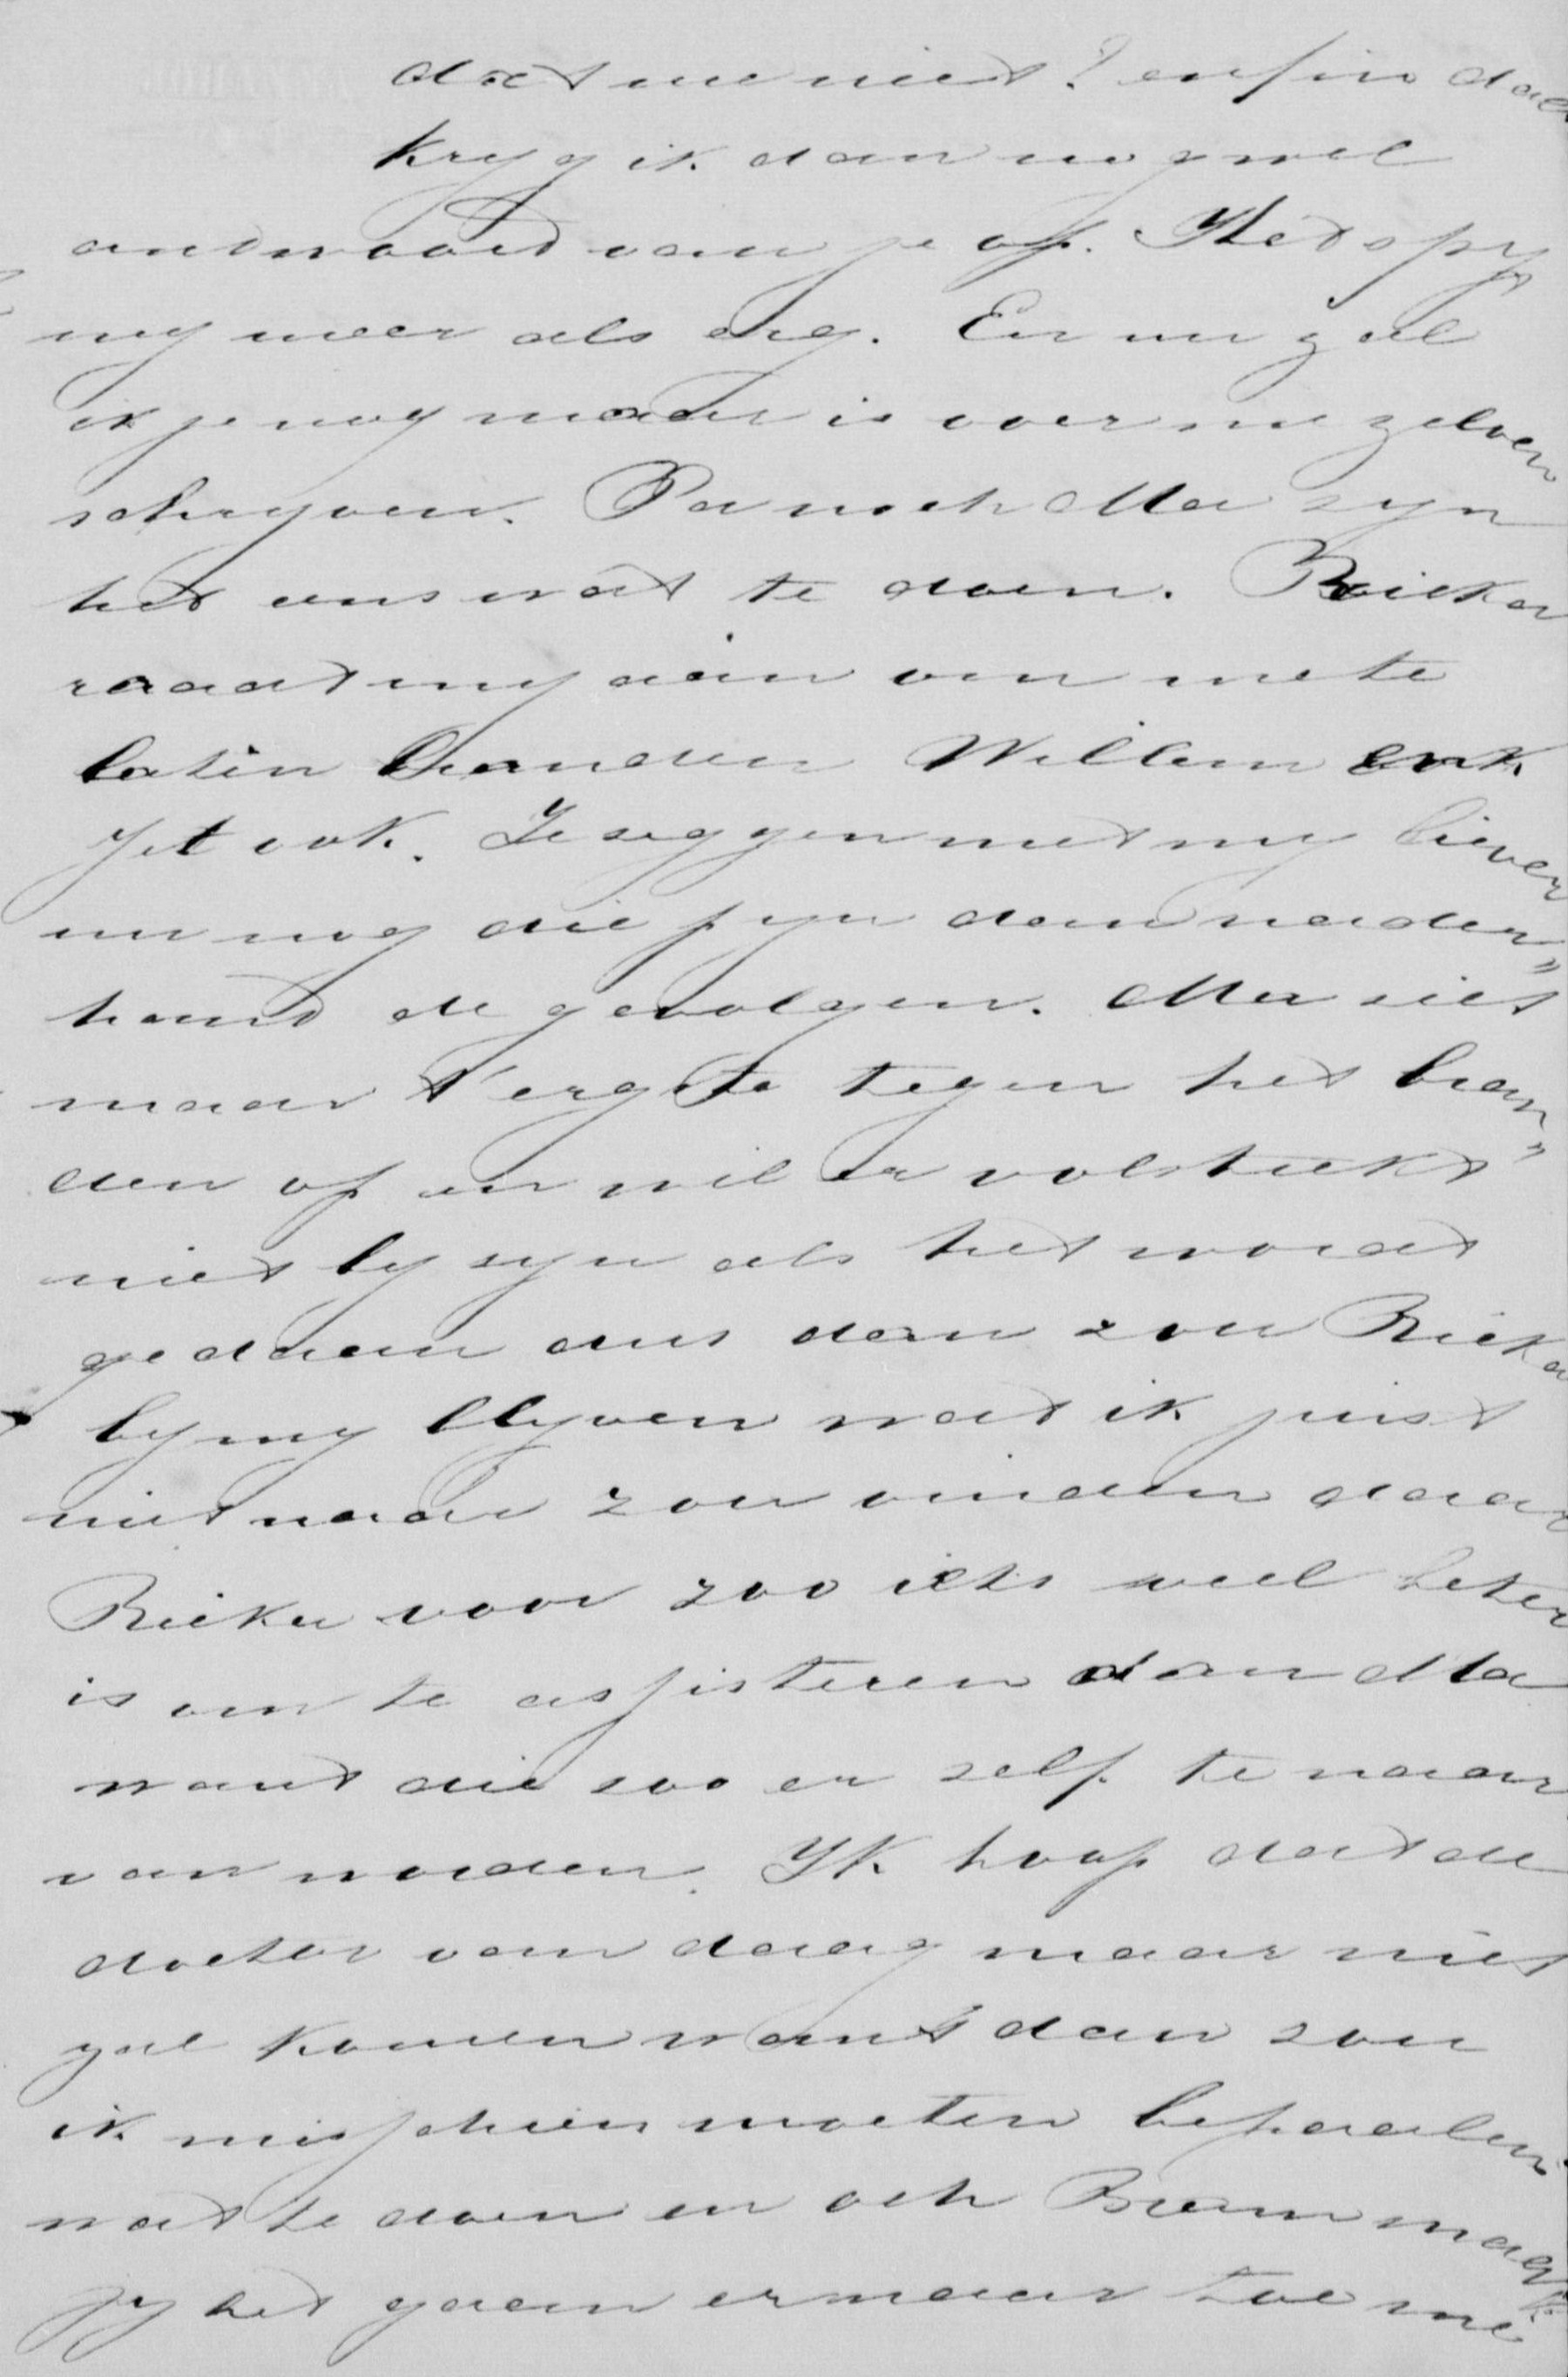 dat me niet? enfin daar
kryg ik dan nog wel
andwoord van je op. Het spyt
my meer als erg. En nu zal
ik je nog maar is over me zelven
schryven. Pa noch Ma zyn
het eens wat te doen. Rieka
raadt my aan om me te
laten branden Willem ook
Jet ook. Ze seggen met my liever
nu nog die pyn dan nader"
hand de gevolgen. Ma siet
maar t'ergste tegen het bran"
den op en wil er volstrekt
niet by zyn als het wordt
gedaan dus dan zou Rieka
by my blyven wat ik juist
niet naar zou vinden daar
Rieka voor zoo iets veel beter
is om te assisteren dan Ma
want die zoo er self te naar
van worden. Ik hoop dat de
docter van daag maar niet
zal komen want dan sou
ik misschien moeten bepaalen
wat te doen en och Bram maak
jy het gaan er maar toe me